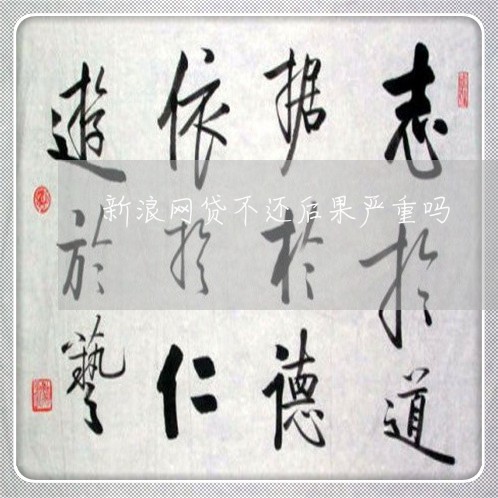 志於道
据於德
依於仁
遊於藝
新浪网贷不还后果严重吗